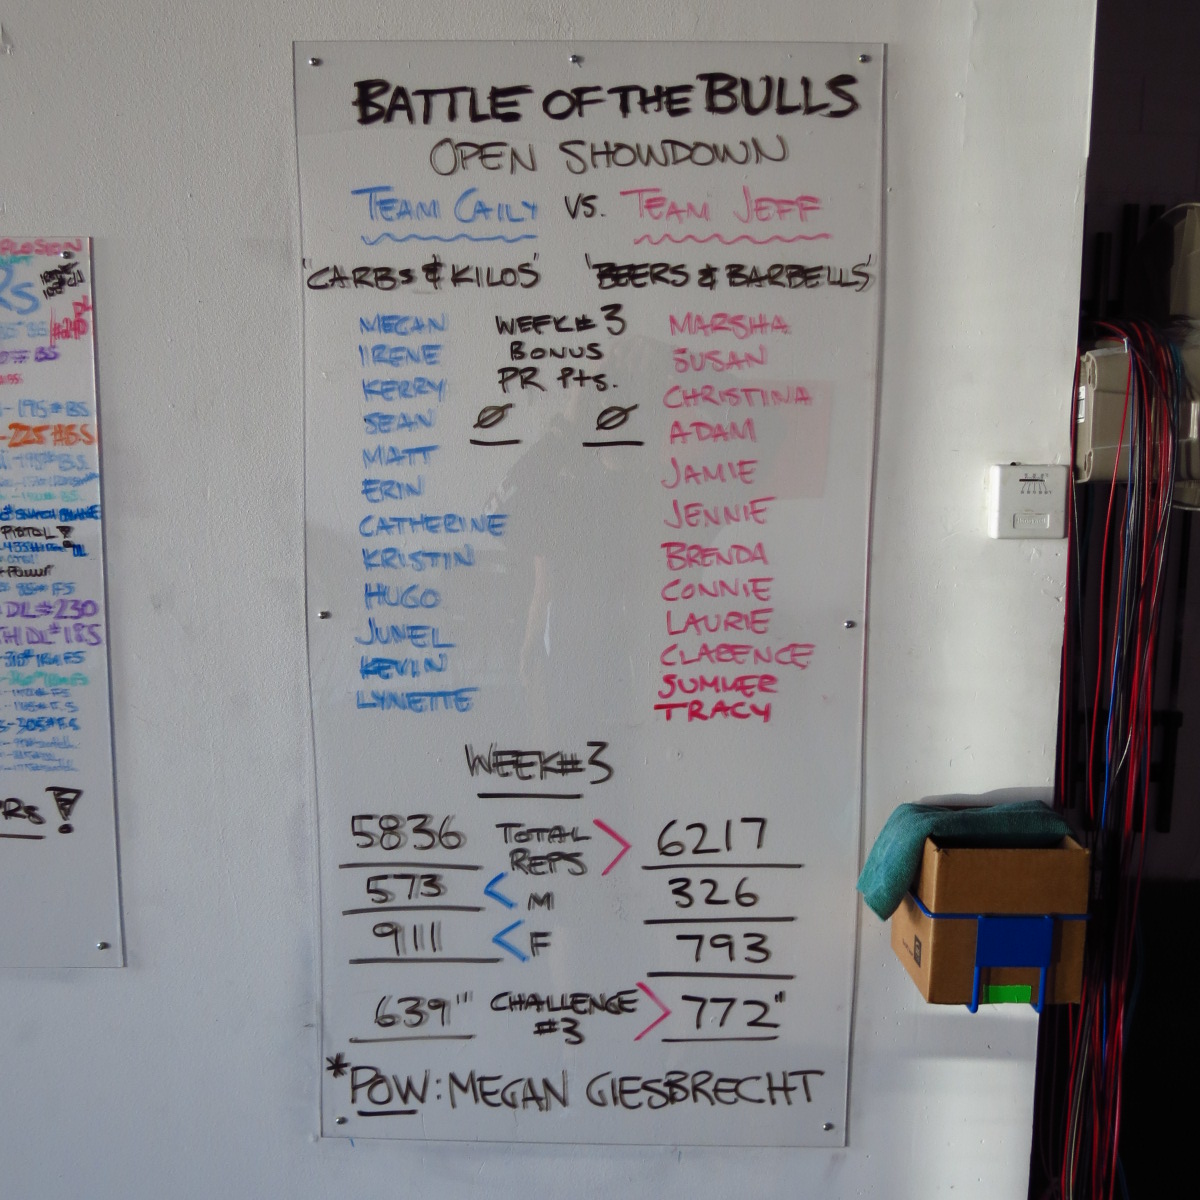 BATTLE OF THE BULLS
OPEN SHOWDOWN
TEAM CAILY VS. TEAM JEFF
"CARBS & KILOS" "BEERS & BARBELLS"
MEGAN WEEK#3 MARSHA
IRENE BONUS SUSAN
KERRY PR Pts. CHRISTINA
SEAN Ø Ø ADAM
MATT JAMIE
ERIN JENNIE
CATHERINE BRENDA
KRISTIN CONNIE
HUGO LAURIE
JUNEL CLARENCE
KEVIN SUMMER
LYNETTE TRACY
WEEK#3
5836 TOTAL REPS > 6217
573 < M 326
9111 < F 793
639" CHALLENGE #3 > 772"
*POW: MEGAN GIESBRECHT
PLOSION
Rs
BS
- 195# BS
-225#BS
PISTOL!
DL#230
TH DL#185
-305# F.S
PRs!